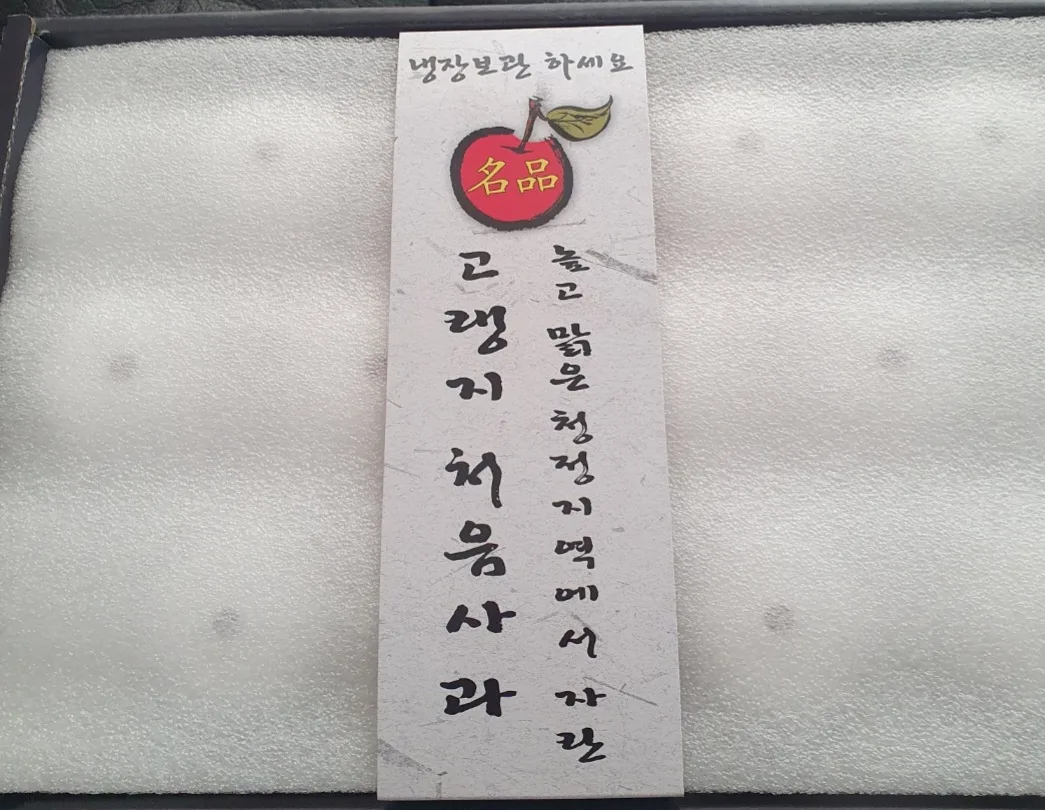 냉장보관 하세요
名品
높고 맑은 청정지역에서 자란
고랭지 처음사과